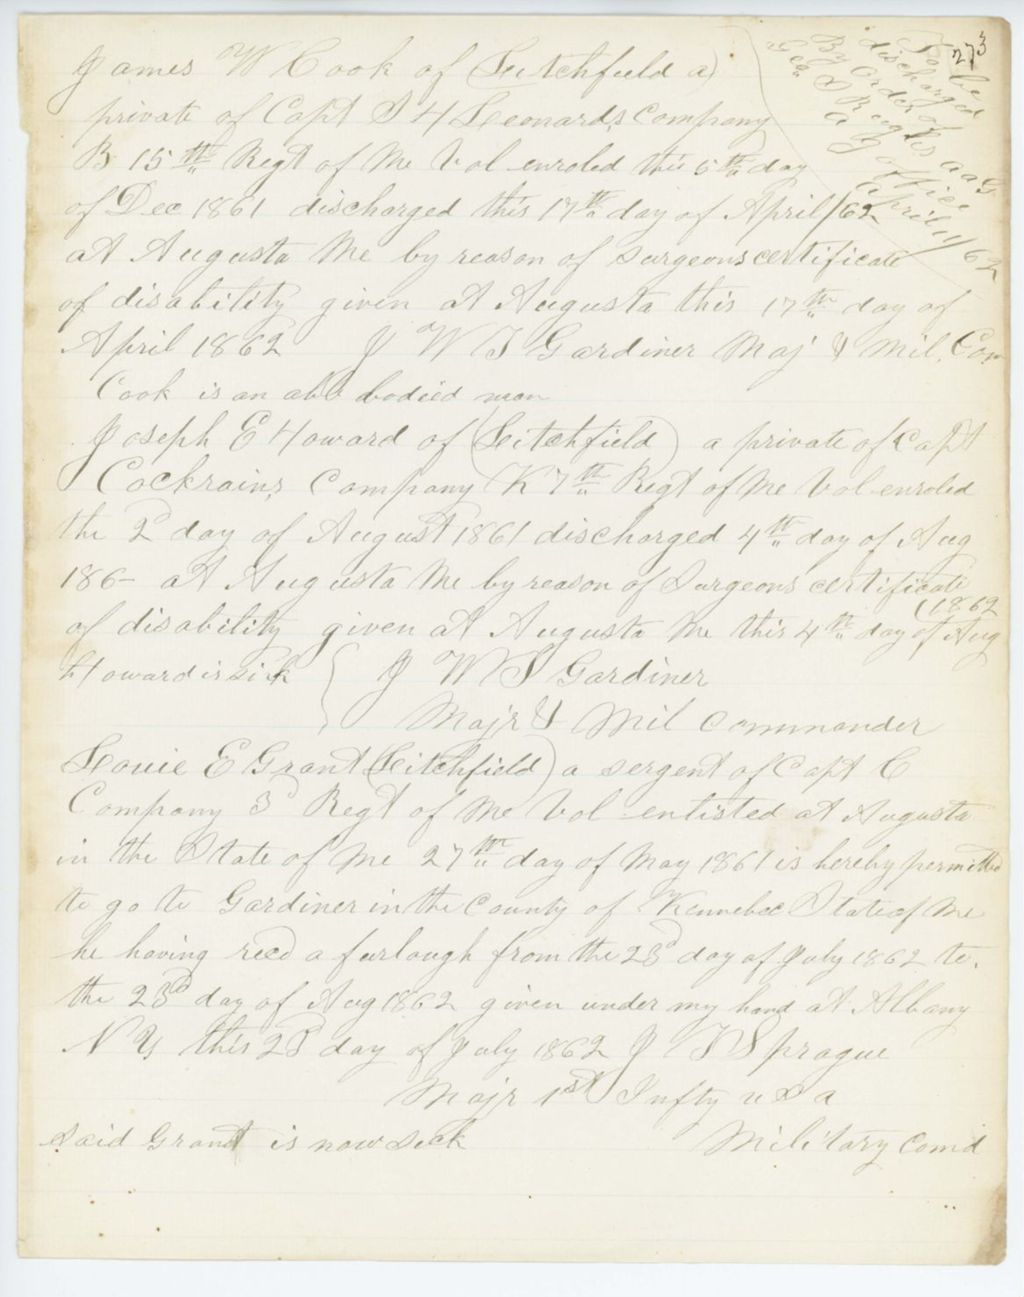 273
To be
discharged
By Order of
Geo L
office
April 11/62
James W Cook of (Litchfield a)
private of Capt I H Leonards Company
B 15th Regt of Me Vol enroled this 6th day
of Dec 1861 discharged this 17th day of April/62
at Augusta Me by reason of Surgeons certificate
of disability given at Augusta this 17th day of
April 1862 J W T Gardiner Maj & Mil. Com
Cook is an able bodied man
Joseph E Howard of (Litchfield) a private of Capt
Cockrains Company K 7th Regt of Me Vol enroled
the 2d day of August 1861 discharged 4th day of Aug
186- at Augusta Me by reason of Surgeons certificate
(1862
of disability given at Augusta Me this 4th day of Aug
Howard is sick { J W T Gardiner
Majr & Mil Commander
Louie E Grant (Litchfield) a sergent of Capt C
Company 3d Regt of Me Vol entisted at Augusta
in the State of Me 27th day of May 1861 is hereby permitted
to go to Gardiner in the County of Kennebec State of Me
he having recd a furlough from the 23d day of July 1862 to.
the 23d day of Aug 1862 given under my hand at Albany
N Y this 23d day of July 1862 J T Sprague
Majr 1st Infty U S A
said Grant is now sick Military Comd